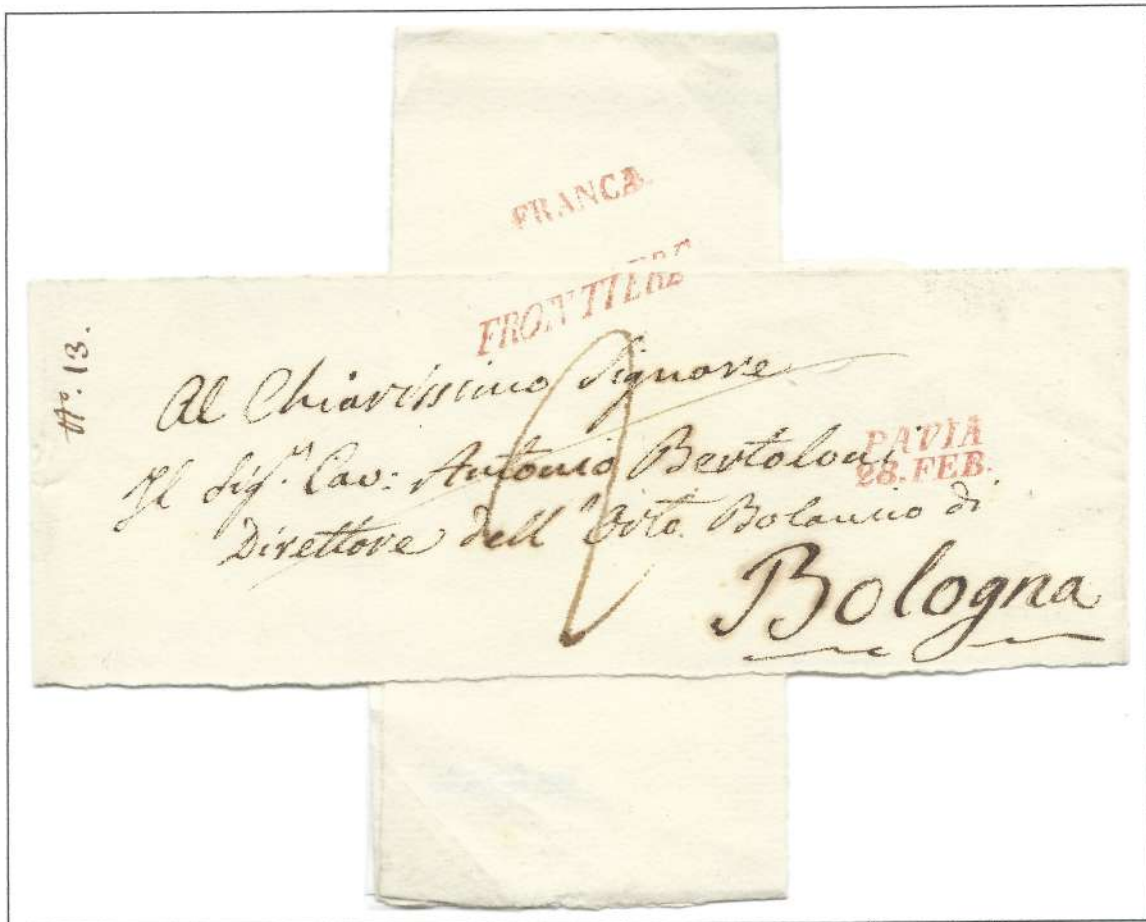 FRANCA.
FRONTIERE
Nº. 13.
Al Chiarissimo Signore
Il Sigr. Cav: Antonio Bertoloni
PAVIA
28. FEB.
Direttore dell'Orto Botanico di
Bologna